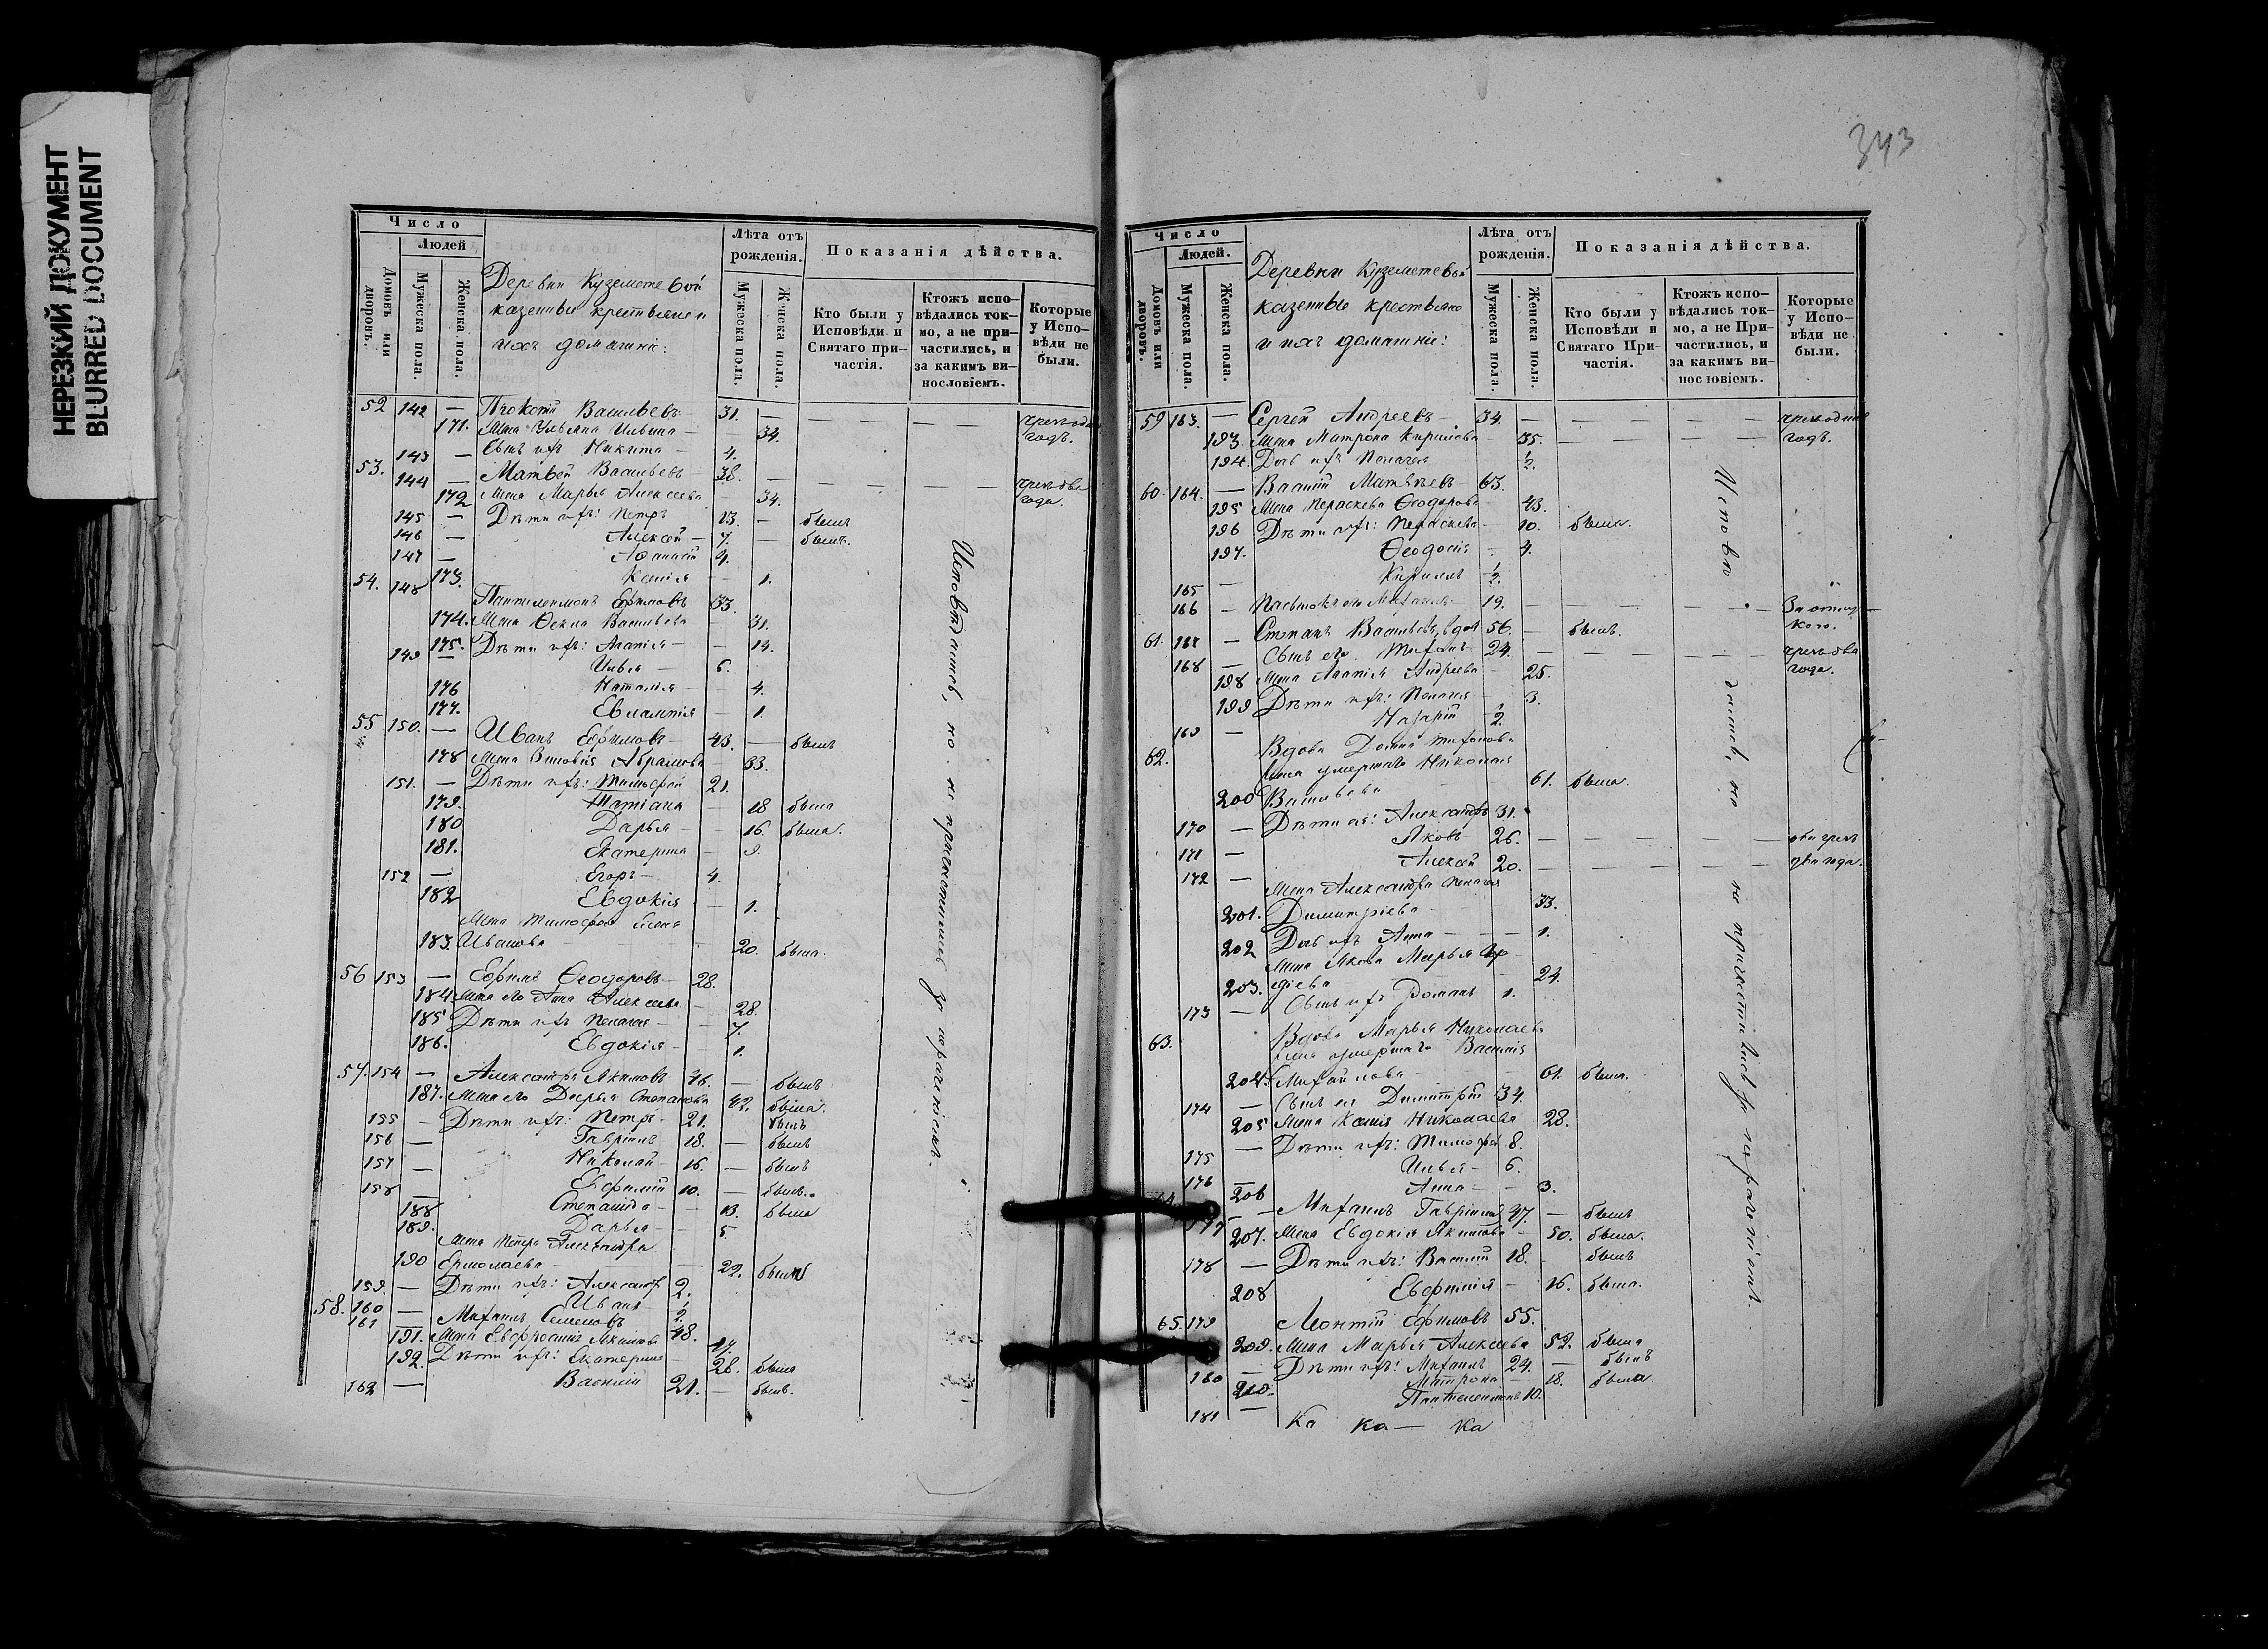 НЕРЕЗКИЙ ДОКУМЕНТ
BLURRED DOCUMENT
Число
Людей
Домовъ или дворовъ.
Мужеска пола.
Женска пола.
Деревни Куземетевой
казенные крестьяне и
ихъ домашніе:
Лѣта отъ рожденія.
Мужеска пола.
Женска пола.
Показанія дѣйства.
Кто были у Исповѣди и Святаго при-
частія.
Ктожъ испо-
вѣдались ток-
мо, а не при-
частились, и
за какимъ ви-
нословіемъ.
Которые
у Испо-
вѣди не
были.
52 142 — Прокопій Васильевъ 31. — — — —
171. Жена Ульяна Ильина — 34. годъ.
143 — Сынъ ихъ Никита — 4.
53. 144 — Матвей Васильевъ 38. — — — — —
172 Жена Марья Алексеева 34. года.
145 — Дѣти ихъ: Петръ 13. — былъ
146 — Алексей — 7. — былъ.
147 — Афанасій 4.
173. Ксенія — 1.
54. 148 Пантелеимонъ Ефимовъ 33.
174. Жена Фекла Васильева — 31.
175. Дѣти ихъ: Агапія — — 14.
149 — Илья — 6.
176 Наталія — — 4.
177. Евлампія — 1.
55 150. — Иванъ Ефимовъ — 43. — былъ
178 Жена Абрамова — 33.
151. — Дѣти ихъ: Тимофей 21.
179. Татіана — 18 была
180 Дарья — — 16. была.
181. Екатерина — 9.
152 — Егоръ — 4.
182 Евдокія — 1.
Жена Тимофея Елена
183. Иванова — 20. была.
56 153 — Ефимъ Феодоровъ — 28.
184. Жена его Анна Алексеева — 28.
185 Дѣти ихъ Пелагея — — 7.
186. Евдокія — — 1.
57. 154 — Александръ Якимовъ 46. — былъ
187. Жена его Дарья Степанова 42. была.
155 — Дѣти ихъ: Петръ 21. былъ
156 — Гавріилъ 18. — былъ
157 — Николай — 16. — былъ
158 — Евфимій 10. — былъ.
188 Степанида — — 13. была
189. Дарья — — 5.
Жена Петра Александра
190 Ермолаева — — 22. была
159. — Дѣти ихъ: Александръ 2.
160 — Иванъ — 1/2.
58. 161 — Михаилъ Семеновъ 48.
191. Жена Евфросинія Якимова 47.
192. Дѣти ихъ: Екатерина — 28. была
162 — Василій 21. — былъ.
Исповѣдались, но не причастились за нерачéніемъ.
343
Число
Людей.
Домовъ или дворовъ.
Мужеска пола.
Женска пола.
Деревни Куземетевой
казенные крестьяне
и ихъ домашніе:
Лѣта отъ рожденія.
Мужеска пола.
Женска пола.
Показанія дѣйства.
Кто были у
Исповѣди и
Святаго При-
частія.
Ктожъ испо-
вѣдались ток-
мо, а не При-
частились, и
за какимъ ви-
нословіемъ.
Которые
у Испо-
вѣди не
были.
59 163. — Сергей Андреевъ — 34. — — — — —
193. Жена Матрона Кирилова — 35. — — — — годъ.
194. Дочь ихъ Пелагея — 1/2.
60. 164. — Василій Матвѣевъ — 63.
195 Жена Параскева Феодорова — 43.
196 Дѣти ихъ: Параскева — 10. была.
197. Феодосія — 4.
165 — Кириллъ — 1/2.
166 — Пасынокъ его Михаилъ — 19. — — — — — За отлуч-
кою.
61. 167 — Степанъ Васильевъ, вдов 56. — былъ.
168 — Сынъ его Тихонъ 24. — — — — —
198 Жена Агапія Андреева — 25. года.
199 Дѣти ихъ: Пелагея — 3.
169 — Назарій — 1/2.
62. Вдова Домна Тихонова
жена умершаго Николая
200 Васильева — 61. была.
170 — Дѣти ея: Александръ 31.
171 — Яковъ 26. — — — — —
172 — Алексей 20. — — — — — два года.
Жена Александра Пелагея
201. Димитріева — 33.
202 Дочь ихъ Анна — — 1.
Жена Якова Марья
203. — 24.
173 — Сынъ ихъ Романъ 1.
63. Вдова Марья Николаева
жена умершаго Василія
204. Михайлова — — 61. была.
174 — Сынъ ея Димитрій 34.
205 Жена Ксенія Николаева 28.
175 — Дѣти ихъ: Тимофей 8.
176 — Илья — 6.
206 Анна — — 3.
64. 177 — Михаилъ Гавріиловъ 47. — былъ
207. Жена Евдокія Якимова — 50. была.
178 — Дѣти ихъ: Василій 18. — былъ
208 Евфимія — 16. была.
65. 179 Леонтій Ефимовъ 55.
209. Жена Марья Алексеева 52. была
180 — Дѣти ихъ: Михаилъ 24. — былъ
210 Матрона — 18. была.
181 — Пантелеимонъ 10.
Ка ка — ка
Исповѣдались, но не причастились за нераченіемъ.